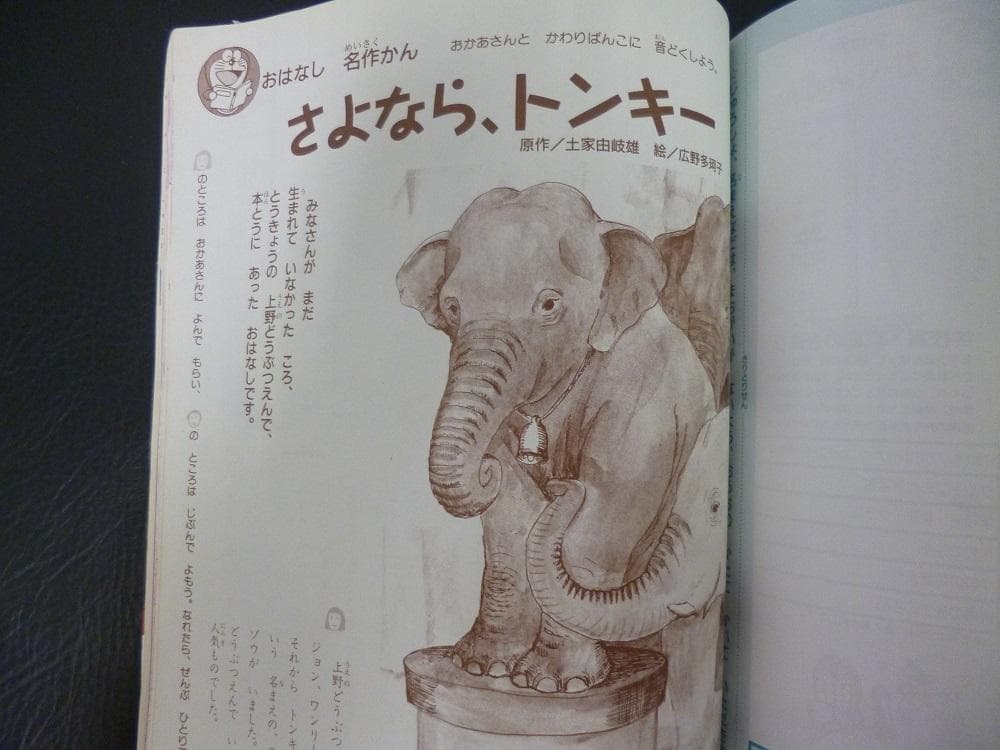 おはなし 名作かん
めいさく
おかあさんと かわりばんこに 音どくしよう。
おん
さよなら、トンキー
原作／土家由岐雄 絵／広野多珂子
みなさんが まだ
生まれて いなかった ころ、
とうきょうの 上野どうぶつえんで、
本とうに あった おはなしです。
のところは おかあさんに よんで もらい、
の ところは じぶんで よもう。なれたら、ぜんぶ ひとり
上野どうぶつ
ジョン、ワンリー
それから トンキ
いう 名まえの、
ゾウが いました。
どうぶつえんで い
人気ものでした。
きりとりせん